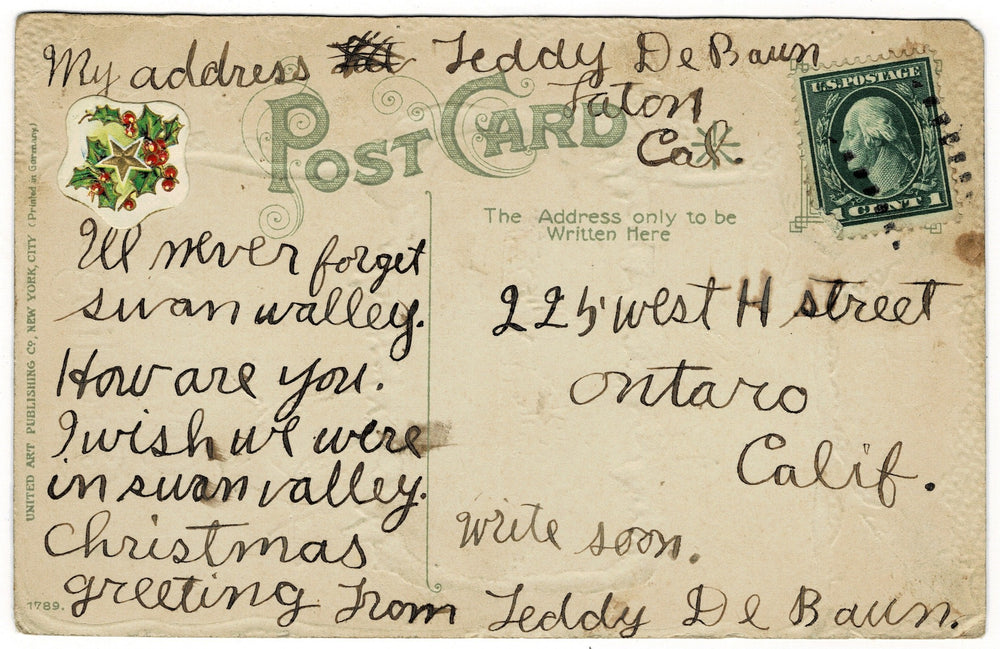 My address Teddy De Baun
Taton
Cal.
POST CARD
U.S. POSTAGE
1 CENT 1
The Address only to be
Written Here
UNITED ART PUBLISHING CO, NEW YORK, CITY (Printed in Germany.)
I'll never forget
swan valley.
How are you.
I wish we were
in swan valley.
Christmas
greeting From Teddy De Baun.
225 west H street
ontaro
Calif.
write soon.
1789.